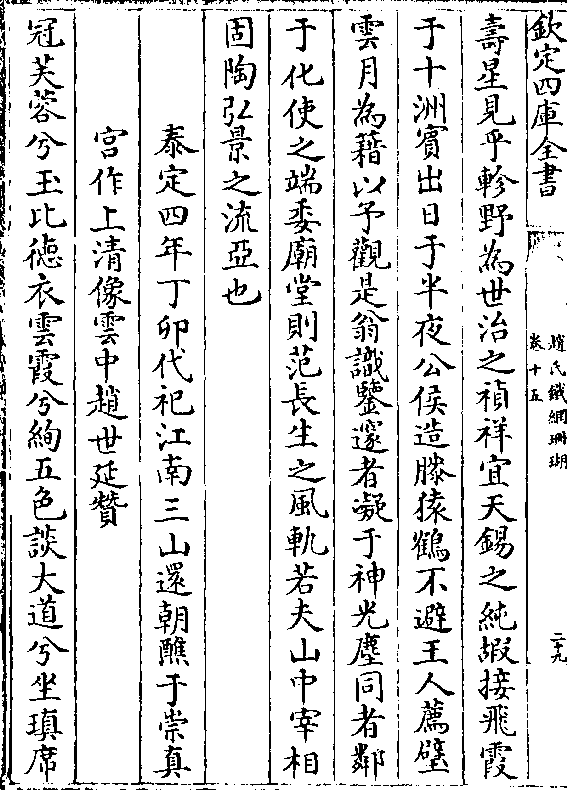 欽定四庫全書
趙氏鐵網珊瑚
卷十五
二十九
壽星見乎軫野為世治之禎祥宜天錫之純嘏接飛霞
于十洲賓出日于半夜公侯造膝猿鶴不避王人薦璧
雲月為藉以予觀是翁識鑒邃者凝于神光塵同者鄰
于化使之端委廟堂則范長生之風軌若夫山中宰相
固陶弘景之流亞也
泰定四年丁卯代祀江南三山還朝醮于崇真
宫作上清像雲中趙世延贊
冠芙蓉兮玉比德衣雲霞兮絢五色談大道兮坐瑱席